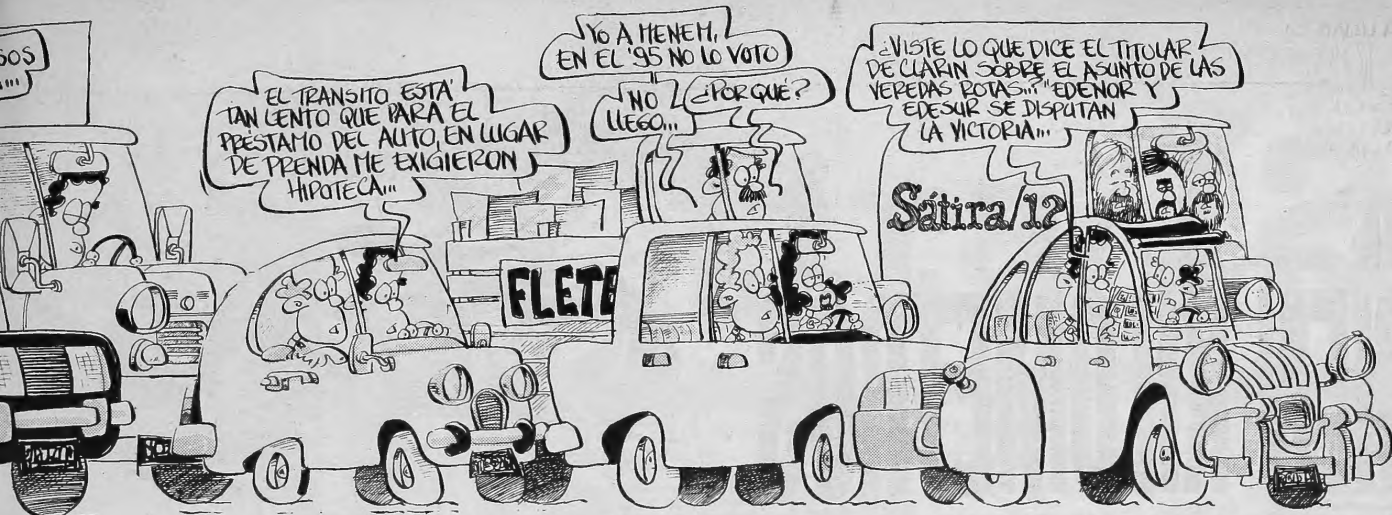 SOS
...
EL TRANSITO ESTÁ
TAN LENTO QUE PARA EL
PRÉSTAMO DEL AUTO, EN LUGAR
DE PRENDA ME EXIGIERON
HIPOTECA...
YO A MENEM,
EN EL '95 NO LO VOTO
¿POR QUÉ?
NO
LLEGO...
¿VISTE LO QUE DICE EL TITULAR
DE CLARIN SOBRE EL ASUNTO DE LAS
VEREDAS ROTAS... "EDENOR Y
EDESUR SE DISPUTAN
LA VICTORIA...
FLETE
Sátira/12